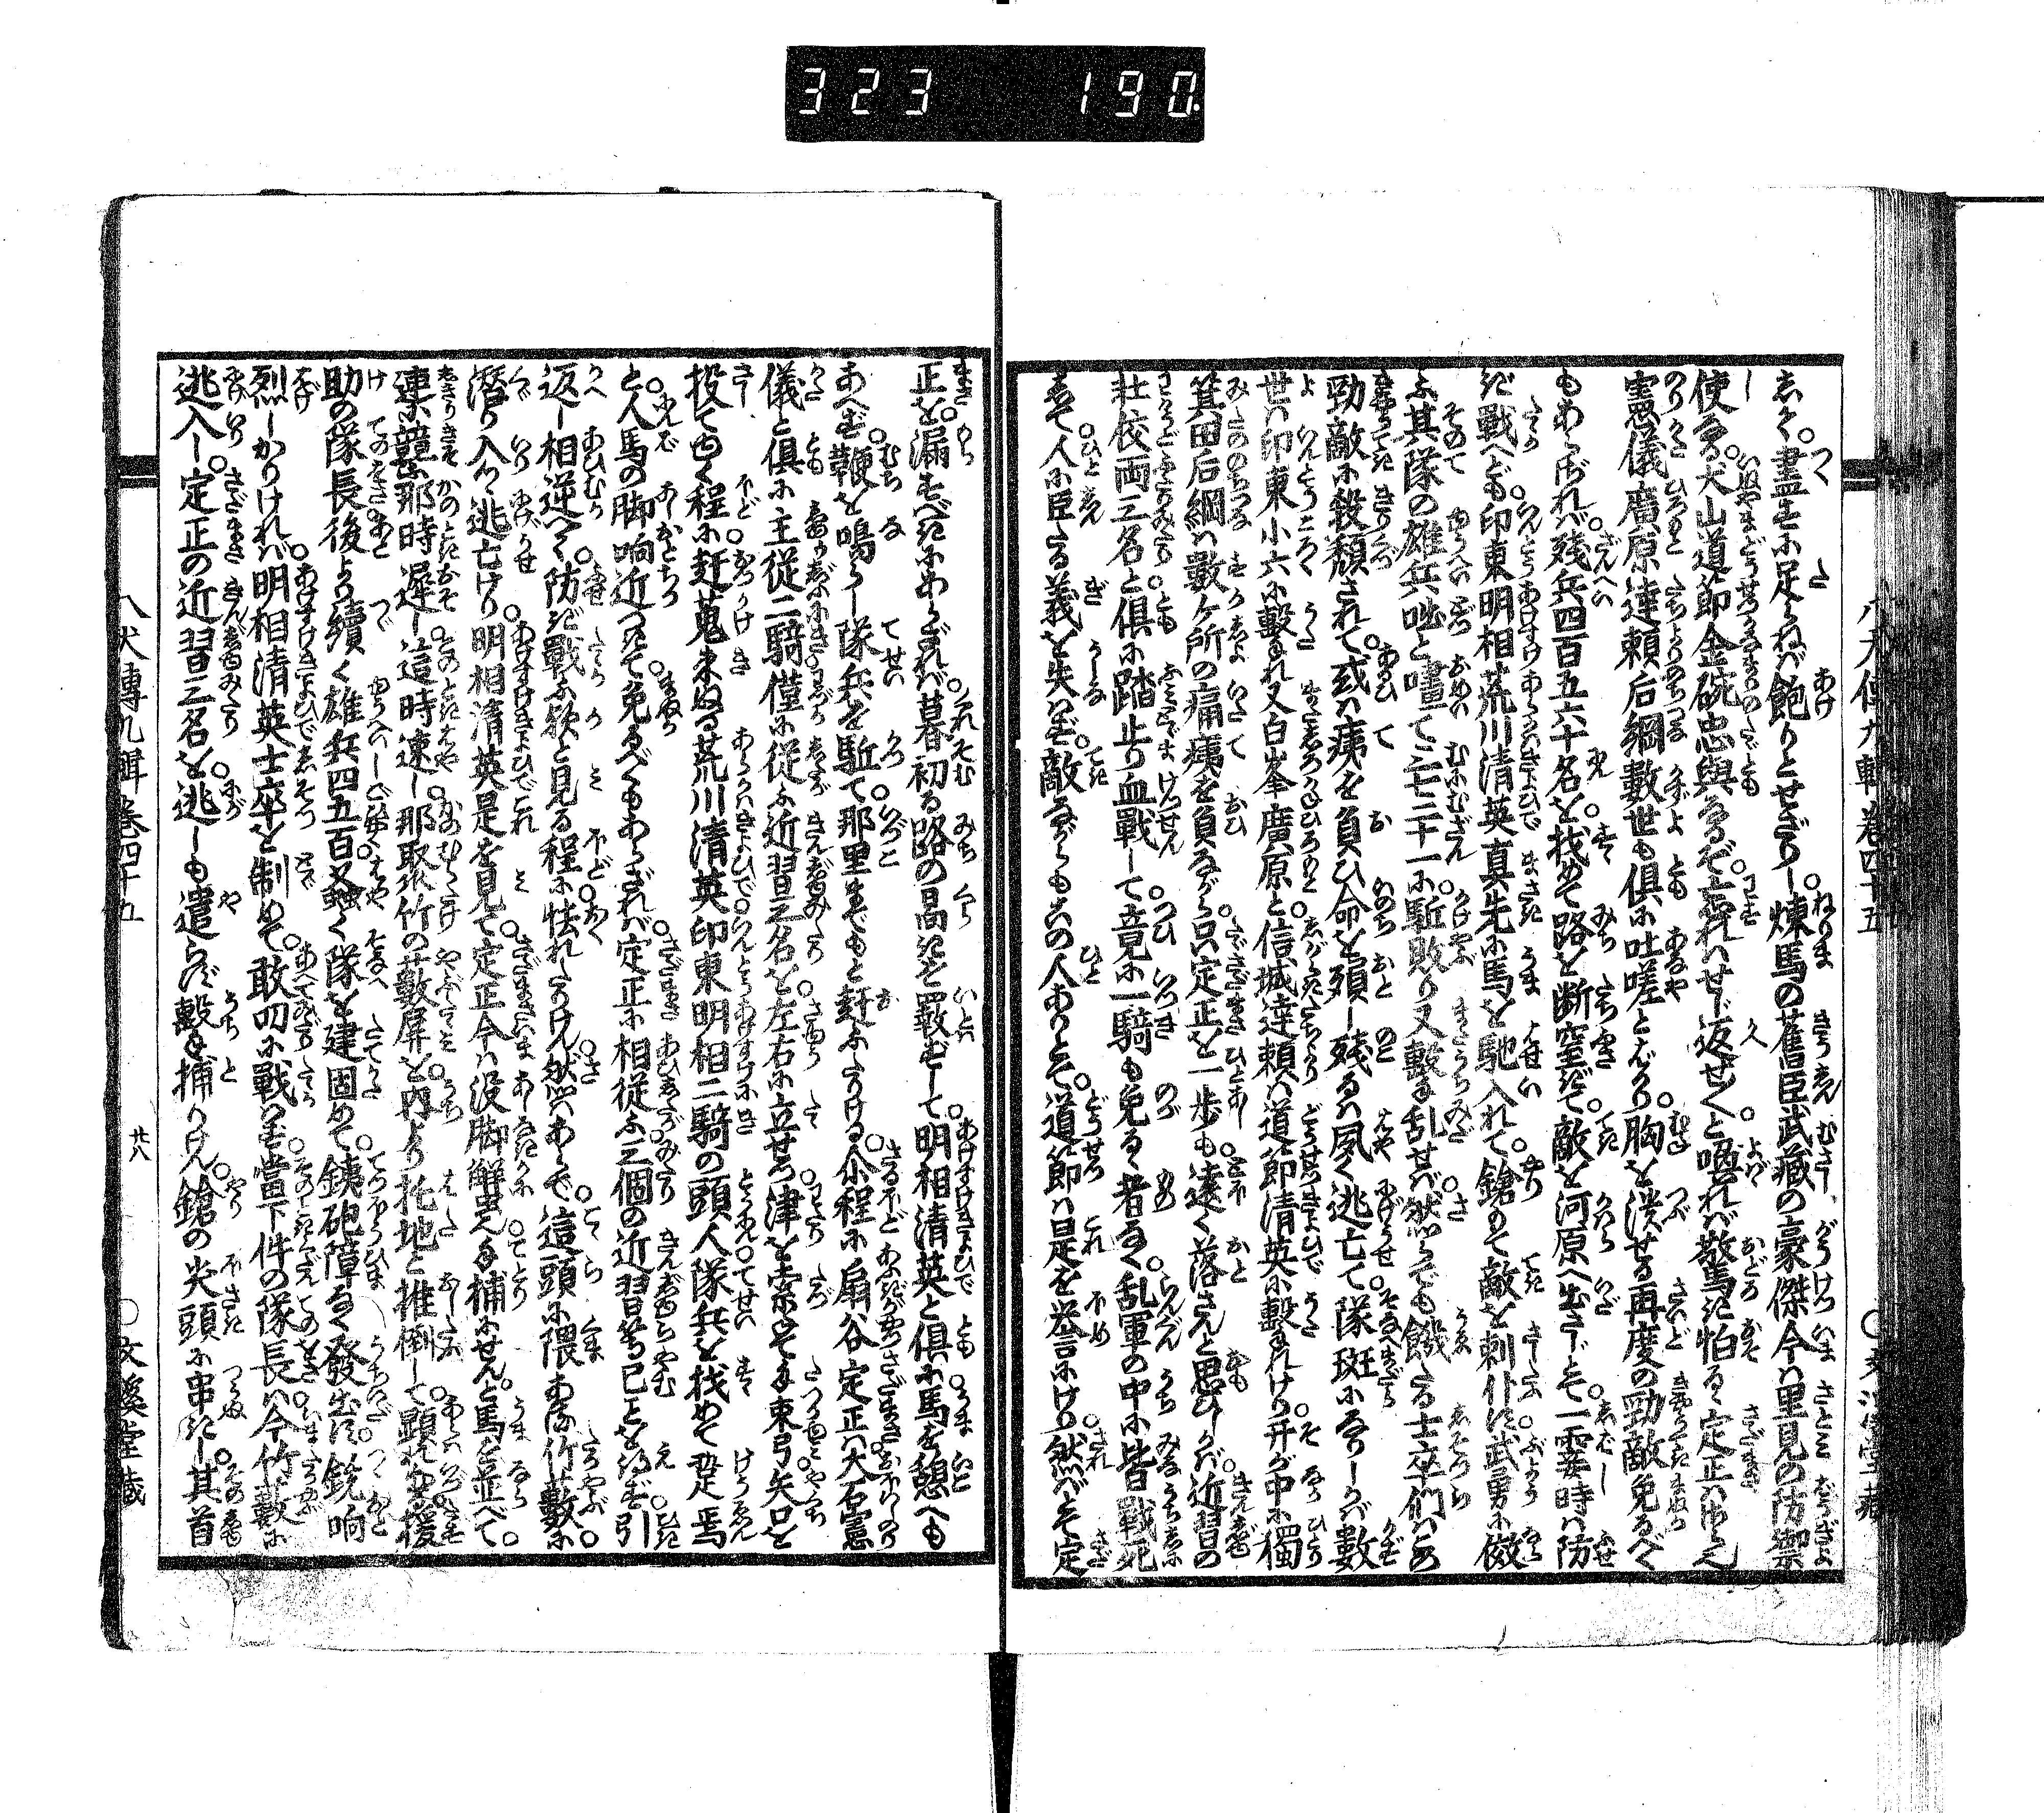 323 190.
八犬傳九輯卷四十五 ○文溪堂藏
しく。盡すに足らねば飽りとせざりし。煉馬の舊臣武藏の豪傑今は里見の防禦
使なる。犬山道節金碗忠與なるぞ。忘れはせじ返せ〳〵と喚れば驚き怕るゝ定正は更也
憲儀廣原達頼后綱數世も俱に吐嗟とばかり。胸を潰せる再度の勁敵免るべく
もあらざれば。殘兵四百五六十名を找めて路を斷塞ぎて。敵を河原へ出さじとて。一霎時は防
ぎ戰へども印東明相荒川清英真先に馬を馳入れて。鎗もて敵を刺仆す武勇に傚
ふ其隊の雄兵咄と嚄て三七二十一に駈敗り又擊ち乱せば然らでも餓たる士卒們はこの
勁敵に殺頽されて。或は痍を負ひ命を殞し殘るは夙く逃亡て隊斑になりしかば數
世は印東小六に擊れ又白峯廣原と。信城達頼は道節清英に擊れけり。开が中に獨
箕田后綱は數ヶ所の痛痍を負ながら。只定正を一步も遠く落さんと思ひしかば。近習の
壯佼両三名と俱に踏止り血戰して竟に一騎も免るゝ者なく。乱軍の中に皆戰死
しき。人に臣たる義を失はず。敵ながらもこの人ありとて。道節は是を譽言にけり。然ばとて定
正を。漏すべきにあらざれば。暮初る路の昬きを厭ずして。明相清英と俱に馬を憩へも
あへず。鞭を鳴らし隊兵を駈て。那里までもと赶ふたりける。介程に扇谷定正は大石憲
儀と俱に主從二騎僅に從ふ近習三名を左右に立せつ。津を索ぞね東弓矢口を
投てゆく程に。赶蒐來ぬる荒川清英。印東明相二騎の頭人隊兵を找めて。蹵焉
と人馬の脚响近つきて。免るべくもあらざれば。定正に相從ふ三個の近習等已ことを得ず。引
返し相逆へて。防ぎ戰ふ歟と見る程に。怯れたりけん然はあらで。這頭に隈ある竹藪に
潛り入りつ逃亡けり。明相清英是を見て。定正今は沒脚蟹。いで捕にせんと馬を並べて。
連り競ふ那時遲し這時速し。那叢竹の藪屏を。内より托地と推倒して。顯れ出る援
助の隊長後より續く雄兵四五百。又蝨く隊を建固めて。銕砲障なく發出す。銃响
烈しかりければ。明相清英士卒を制めて。敢叨に戰はず。當下件の隊長は今竹藪に
逃入し。定正の近習三名を。逃しも遣らず擊ち捕りけん。鎗の尖頭に串きし。其首
八犬傳九輯卷四十五 廿八 ○文溪堂藏